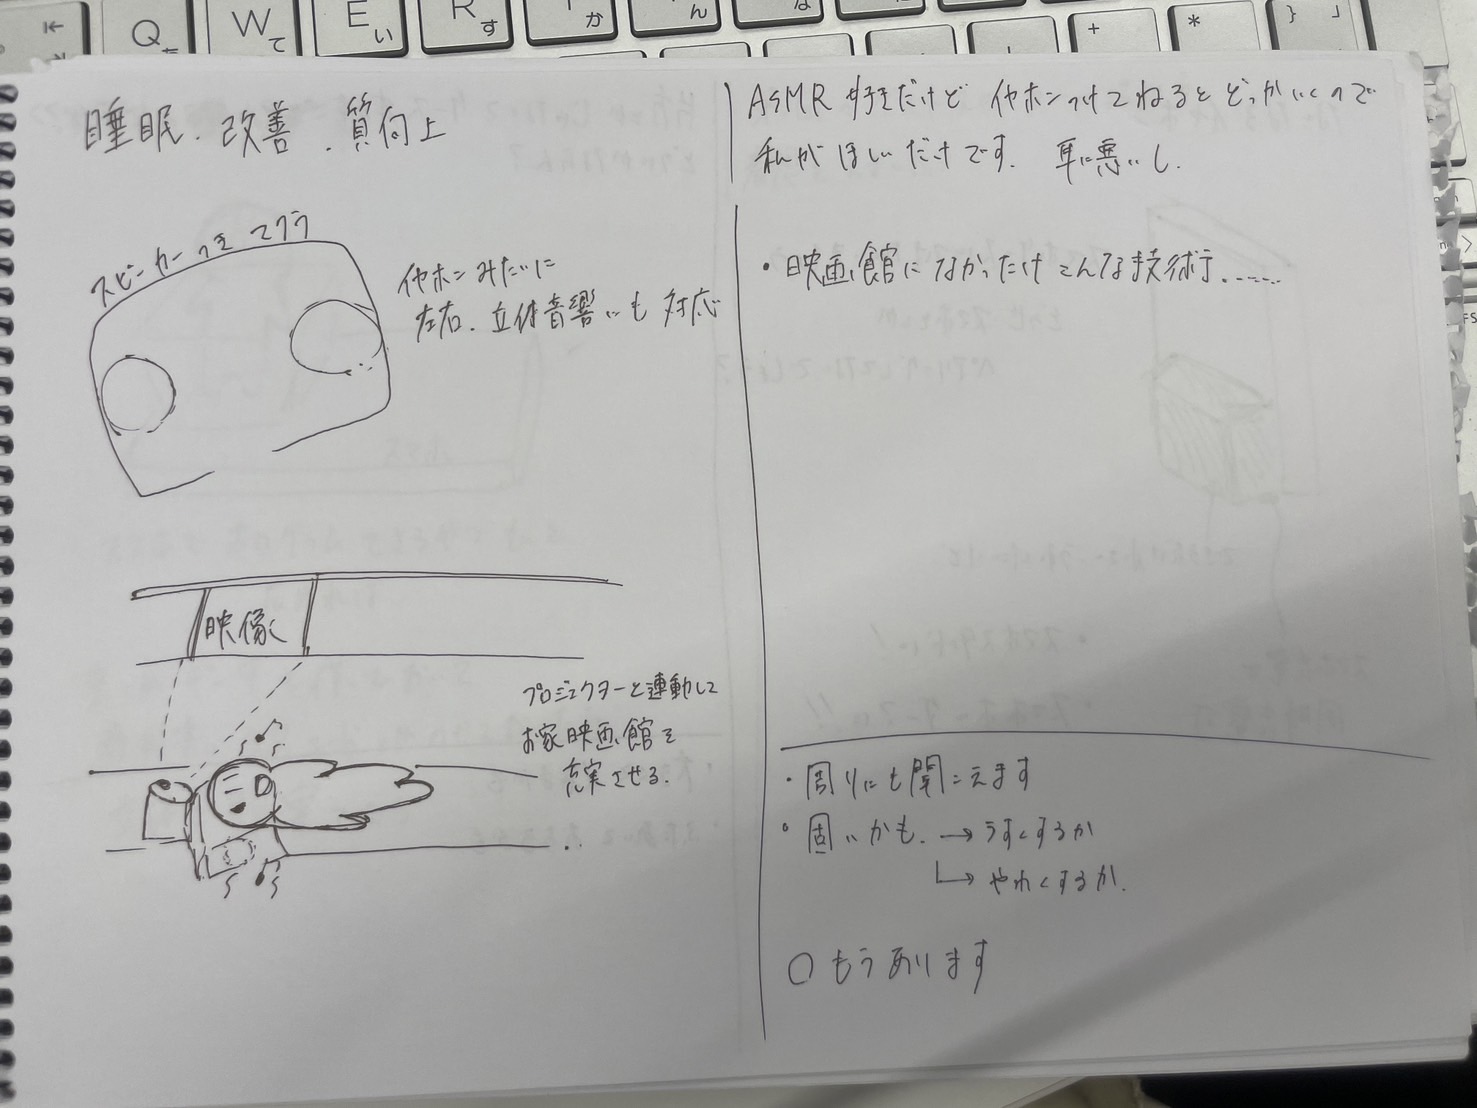 Q
W て
E い
R す
か
ん
な
+
*
} 」
睡眠.改善.質向上
スピーカーつきマクラ
イヤホンみたいに
左右.立体音響いも対応
映像
プロジェクターと連動して
お家映画館を
充実させる.
ASMR好きだけど イヤホンつけてねるとどっかいくので
私がほしいだけです. 耳に悪いし.
・映画館になかったけ こんな技術......
・周りにも聞こえます
・固いかも. → うすくするか
→ やわくするか.
○ もうあります